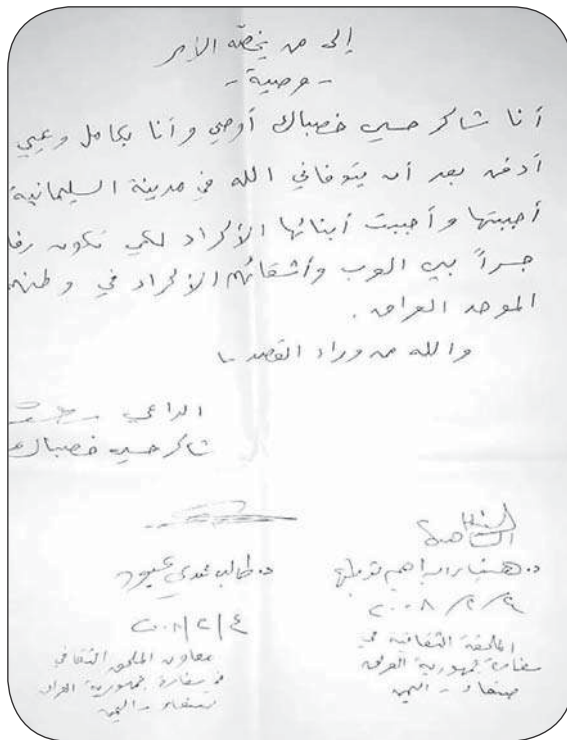 إلى من يخصه الأمر
- وصية -
أنا شاكر حسين خصباك أوصي وأنا بكامل وعيي
أدفن بعد أن يتوفاني الله في مدينة السليمانية
أحببتها وأحببت أبنائها الأكراد لكي تكون رفا
جسراً بين العرب وأشقائهم الأكراد في وطنهم
الموحد العراق.
والله من وراء القصد
الداعي
شاكر حسين خصباك
د. هناء ابراهيم
٢٠٠٨/٢/٤
الملحقة الثقافية في
سفارة جمهورية العراق
صنعاء - اليمن
د. طالب عبود
٢٠٠٨/٢/٤
معاون الملحق الثقافي
في سفارة جمهورية العراق
صنعاء - اليمن